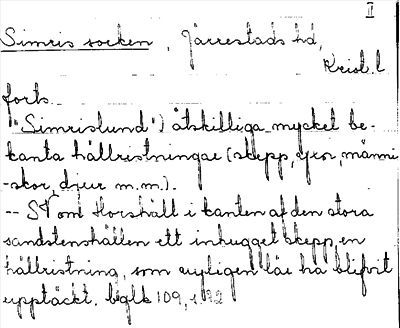 II
Simris socken, Järrestads hd,
Krist. l
forts.
"Simrislund") åtskilliga mycket be-
kanta hällristningar (skepp, yxor, männi
-skor, djur m.m.).
-- SV om Horshall i kanten af den stora
sandstenshällen ett inhugget skepp, en
hällristning, som nyligen lär ha blifvit
upptäckt. bglk 109, s. 92